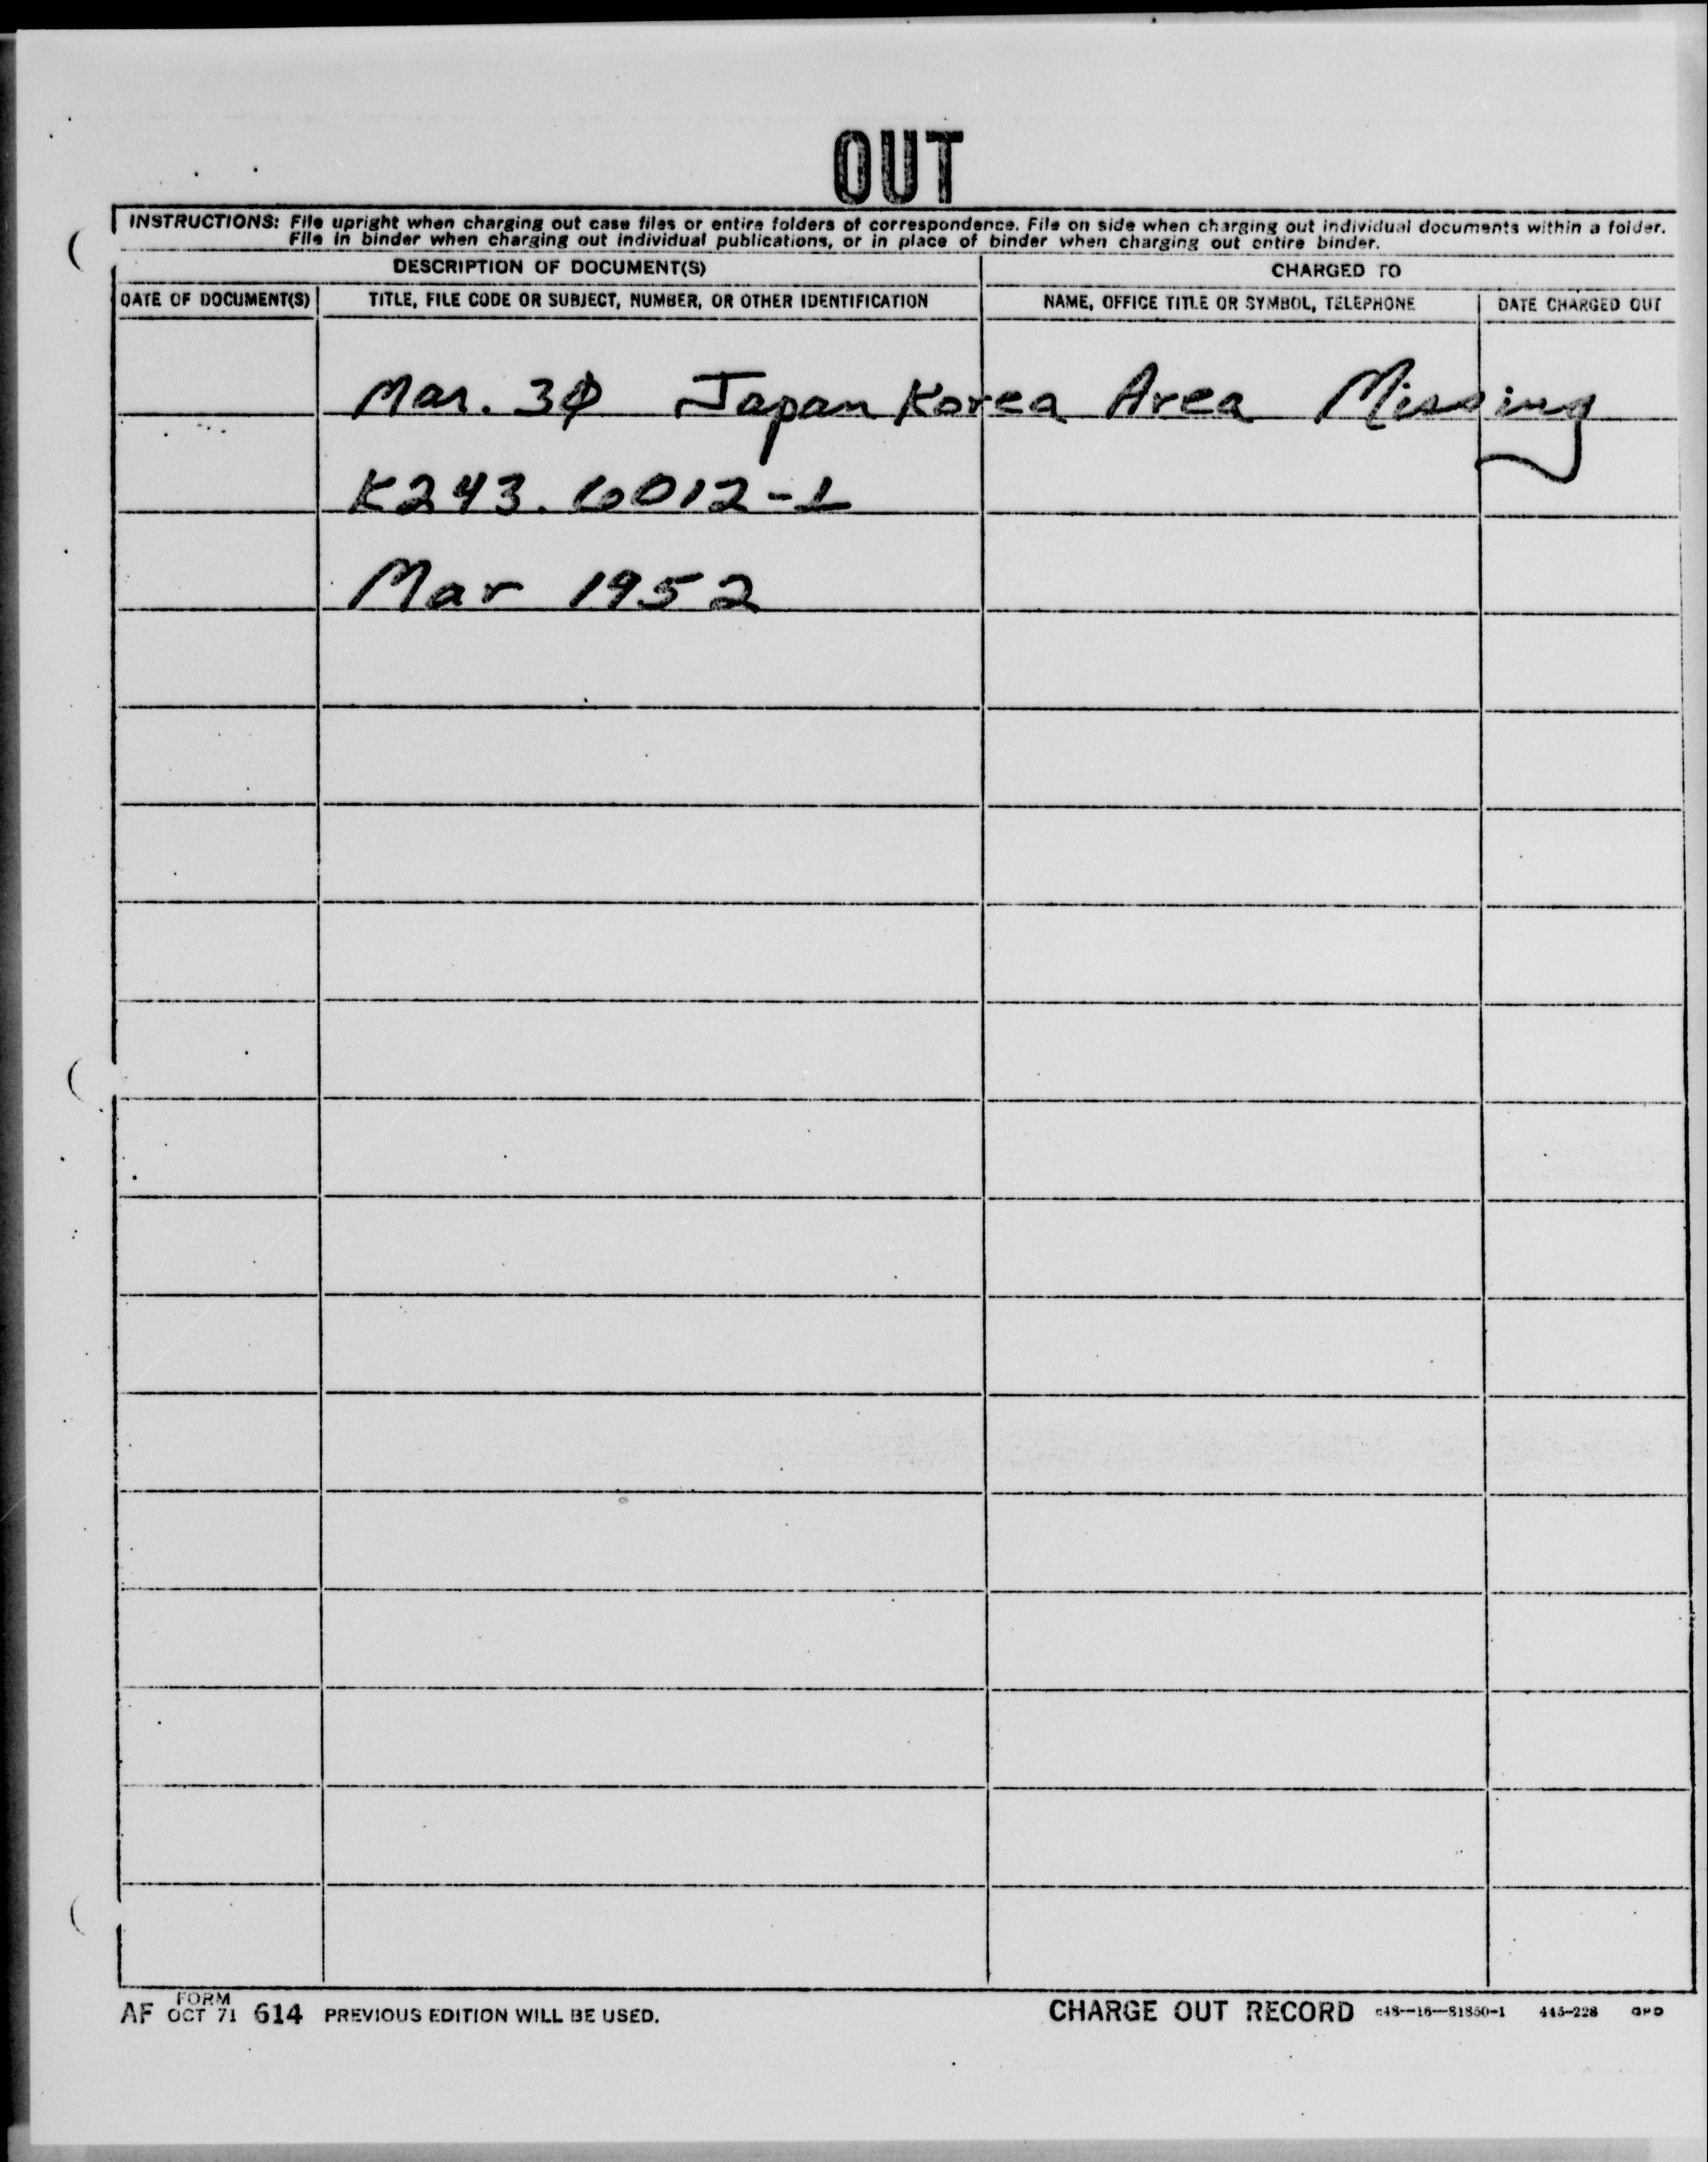 OUT
INSTRUCTIONS: File upright when charging out case files or entire folders of correspondence. File on side when charging out individual documents within a folder.
File in binder when charging out individual publications, or in place of binder when charging out entire binder.
DESCRIPTION OF DOCUMENT(S) CHARGED TO
DATE OF DOCUMENT(S) TITLE, FILE CODE OR SUBJECT, NUMBER, OR OTHER IDENTIFICATION NAME, OFFICE TITLE OR SYMBOL, TELEPHONE DATE CHARGED OUT
Mar. 30 Japan Korea Area Missing
K243.6012-1
Mar 1952
AF FORM OCT 71 614 PREVIOUS EDITION WILL BE USED. CHARGE OUT RECORD c48—16—81850-1 445-228 GPO